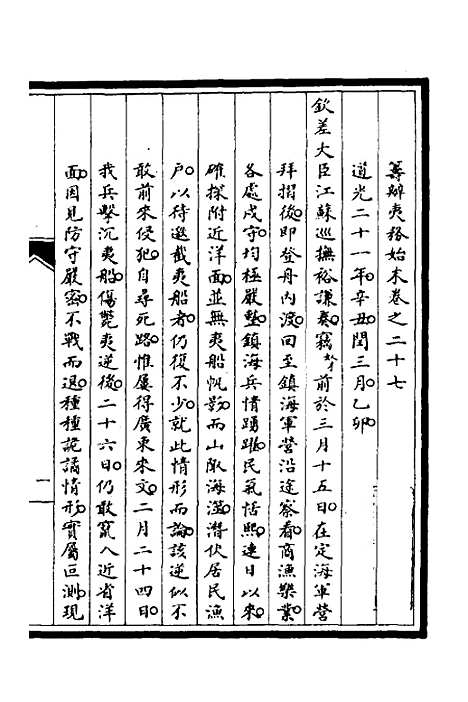 籌辦夷務始末卷之二十七
道光二十一年辛丑閏三月乙卯
欽差大臣江蘇巡撫裕謙奏竊才前於三月十五日在定海軍營
拜摺後即登舟內渡回至鎮海軍營沿途察看商漁樂業
各處戍守均極嚴整鎮海兵情踴躍民氣恬熙連日以來
確探附近洋面並無夷船帆影而山陬海澨潛伏居民漁
戶以待邀截夷船者仍復不少就此情形而論該逆似不
敢前來侵犯自尋死路惟屢得廣東來文二月二十四日
我兵擊沉夷船傷斃夷逆後二十六日仍敢竄入近省洋
面因見防守嚴密不戰而退種種詭譎情形實屬叵測現
一